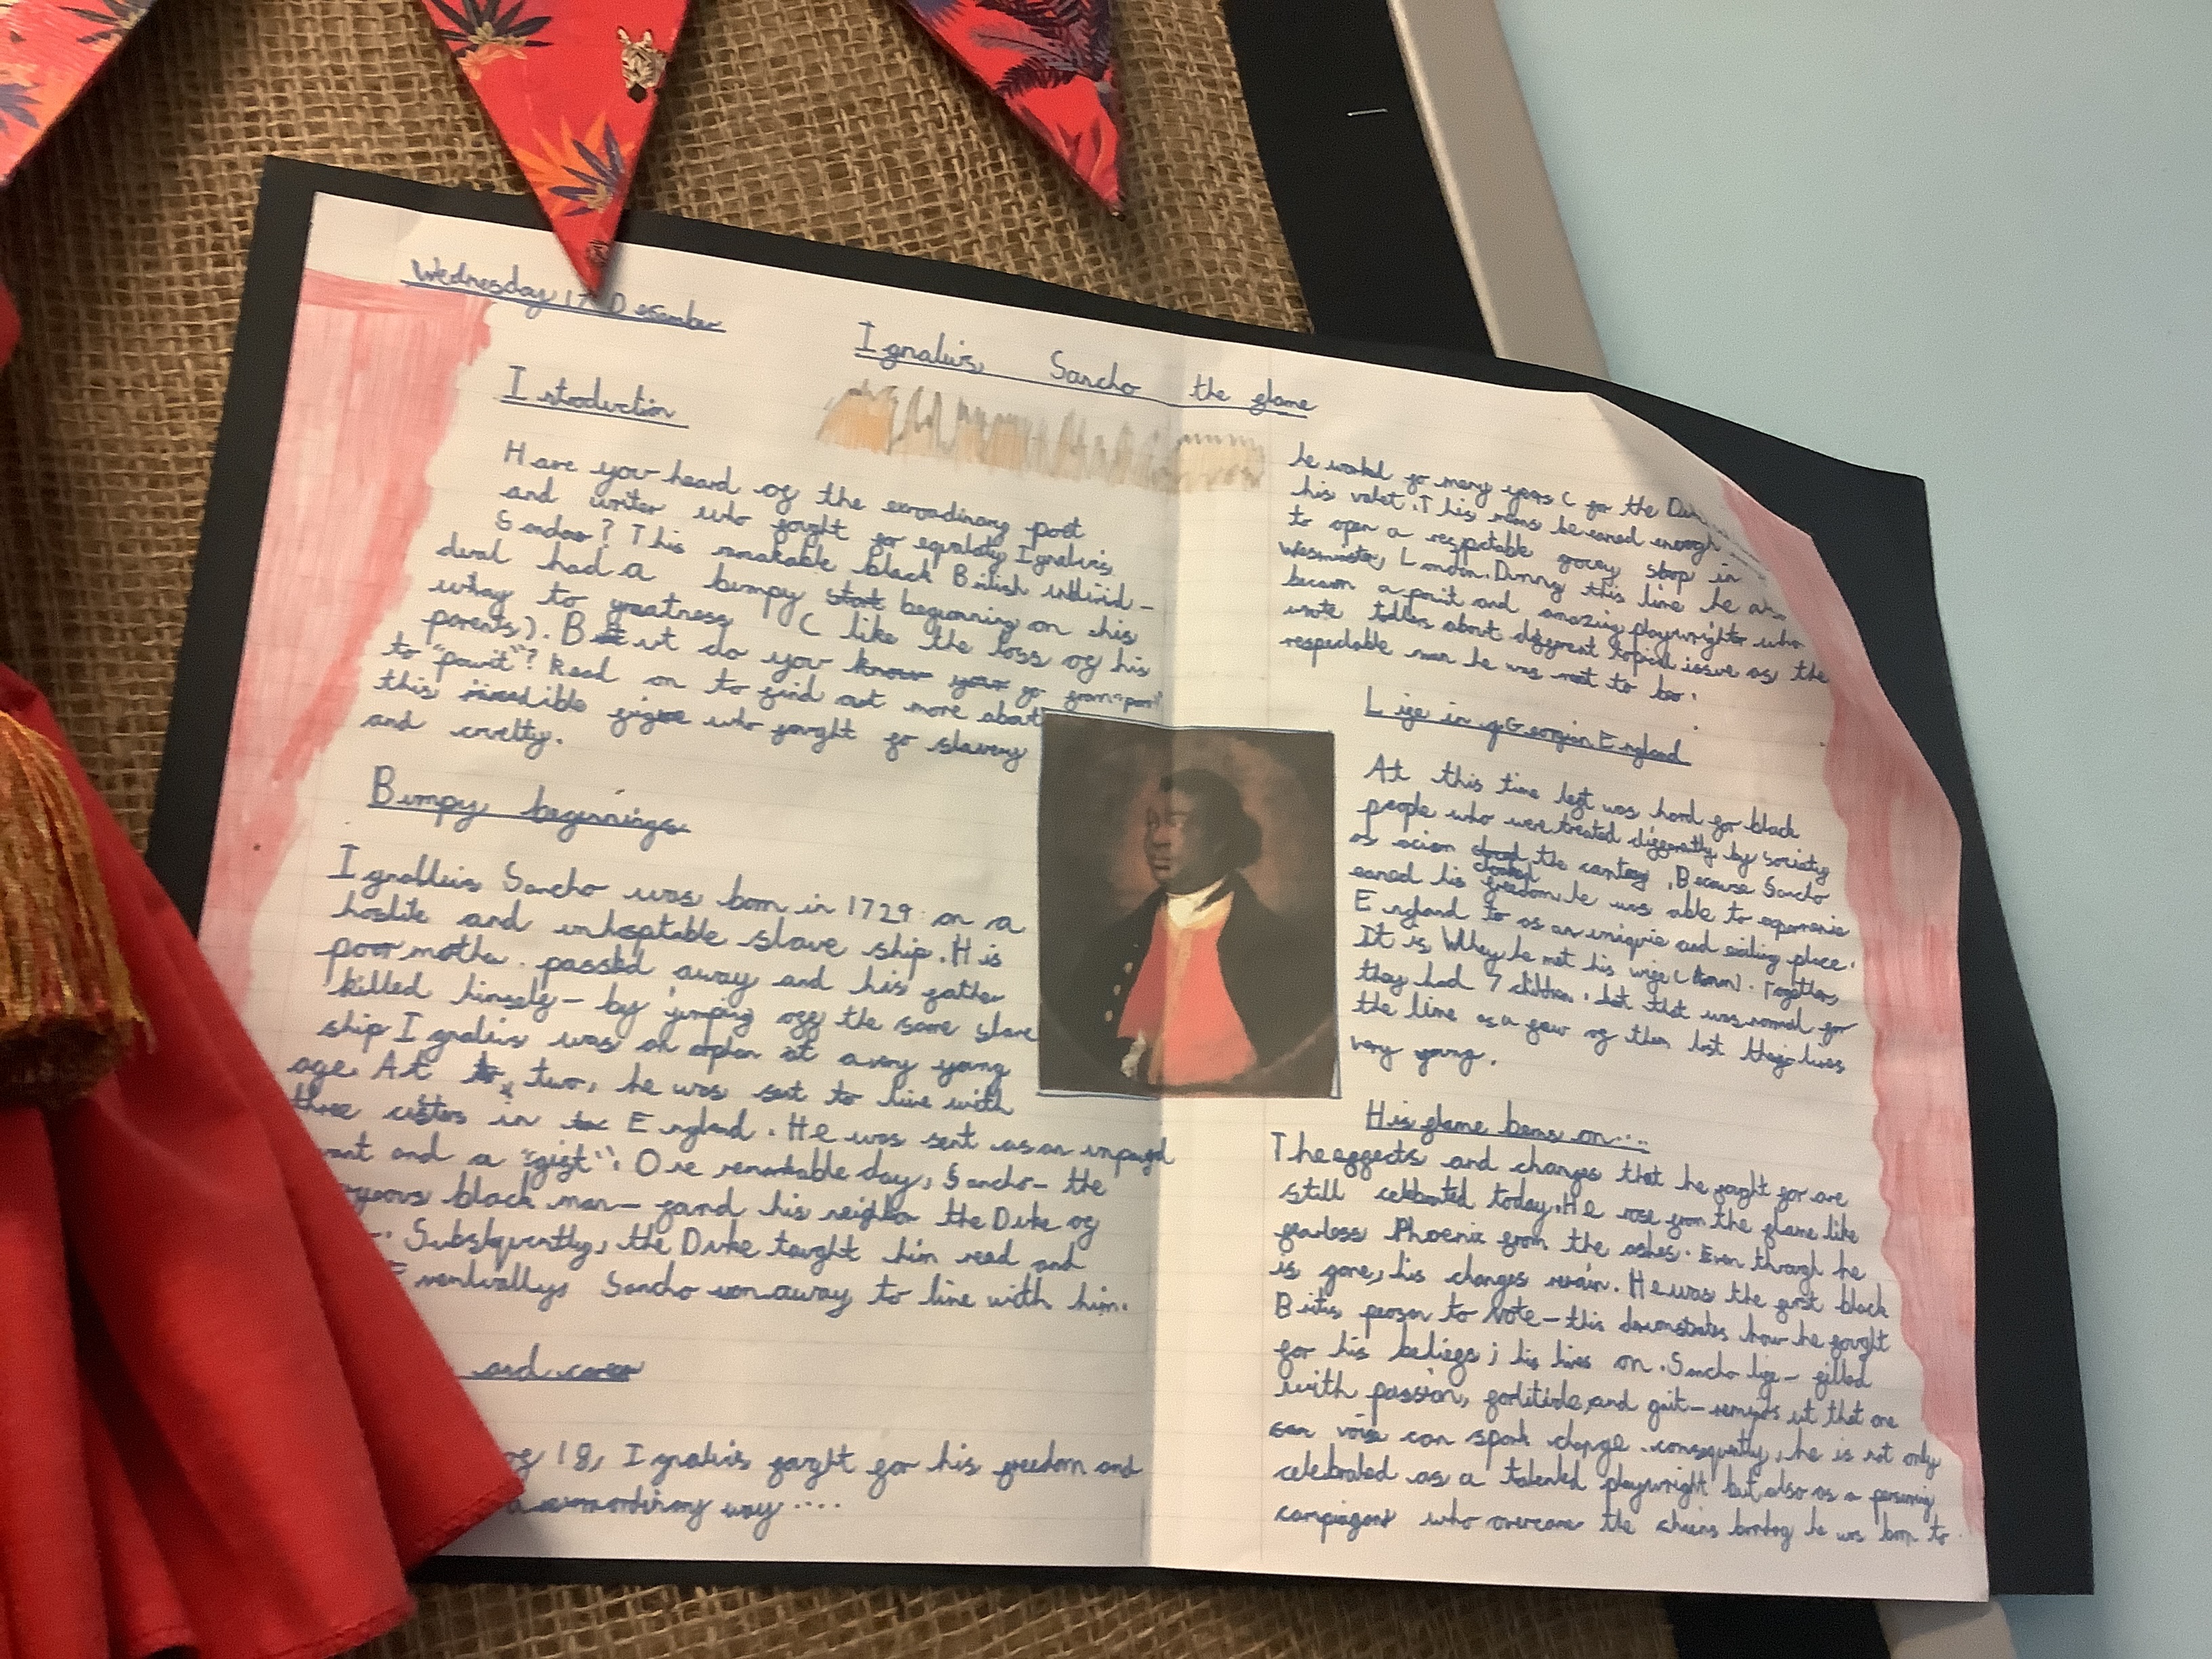 Wednesday 17 Desember
Ignatius Sancho the flame
Introduction
Have you heard of the exroadinary poet
and writer who fought for equality Ignatius
Sancho? This remakable black British individ-
dual had a bumpy start beginning on his
whay to greatness (like the loss of his
parents). But do you know your go from "poor"
to "powit"? Read on to find out more about
this incredible figure who fought for slavery
and cruelty.
Bumpy beginnings
Ignatius Sancho was born in 1729 on a
hostile and unhosptable slave ship. His
poor mother passed away and his father
killed himself - by jumping off the same slave
ship Ignatius was an orphan at a very young
age. At two, he was sent to live with
three sisters in England. He was sent as an unpayd
and a "gift". One remarkable day, Sancho - the
black man - found his neighbor the Duke of
Subsequently, the Duke taught him read and
Eventually, Sancho ran away to live with him.
and career
of 18, Ignatius fought for his freedom and
extraordinary way ....
he worked for many years (for the
his valet. This means he earned enough
to open a respectable grocery shop in
Wesminster, London. During this time he
becam a and amazing playwright who
wrote letters about different topical issue as the
respectable man he was not to be.
Life in Georgian England
At this time left was hard for black
people who were treated differently by society
as the Because Sancho
earned his freedom, he was able to experience
England to as an unique and exiting place.
It is Whey he met his wife (Ann). Together,
they had 7 children, but that was normal for
the time as a few of them lost their lives
very young.
His flame berns on....
The effects and changes that he fought for are
still celebrated today. He rose from the flame like
fearless Phoenix from the ashes. Even through he
is gone, his changes remain. He was the first black
Britis person to vote - this demonstrates how he fought
for his beliefs; his lives on. Sancho life - filled
with passion, fortitide, and - us that one
can spark change. consequently, he is not only
celebrated as a talented playwright but also as a
who overcame the he was born to